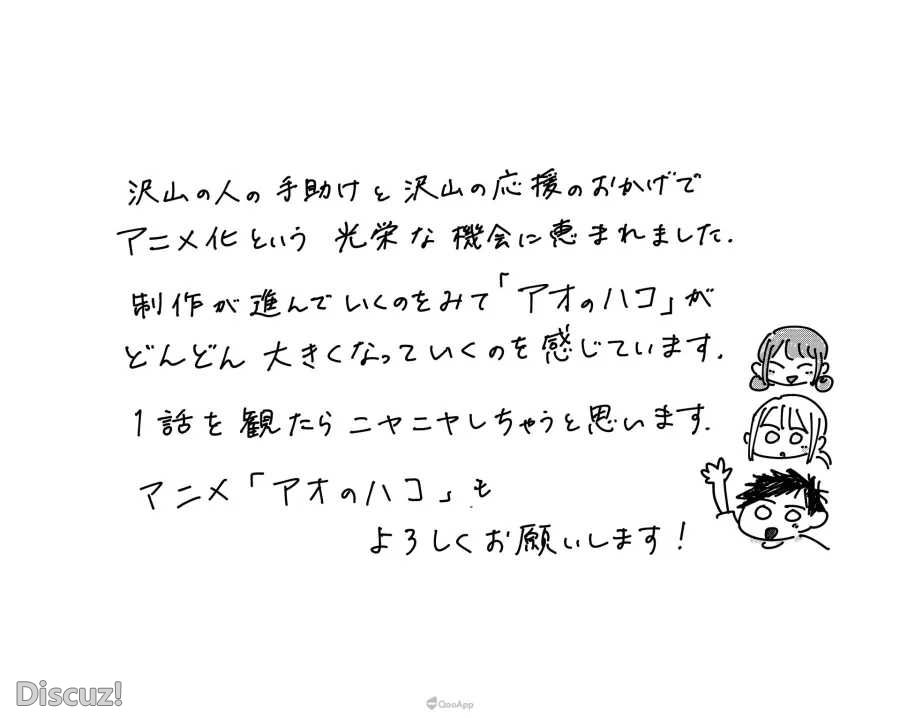 沢山の人の手助けと沢山の応援のおかげで
アニメ化という光栄な機会に恵まれました.
制作が進んでいくのをみて「アオのハコ」が
どんどん大きくなっていくのを感じています.
1話を観たらニヤニヤしちゃうと思います.
アニメ「アオのハコ」も
よろしくお願いします!
Discuz!
QooApp